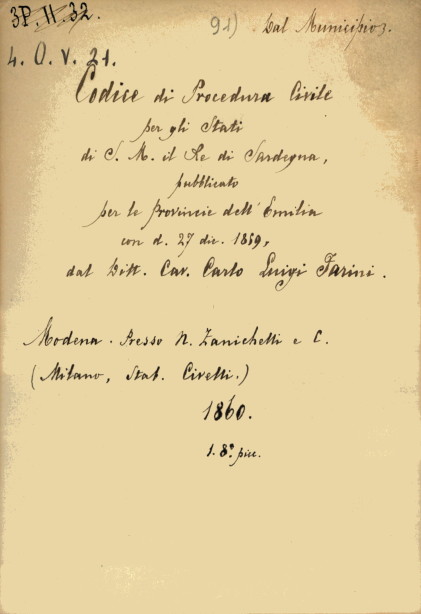 3P. H. 32.
91) Dal Municipio.
4. O. V. 21.
Codice di Procedura Civile
per gli Stati
di S. M. il Re di Sardegna,
pubblicato
per le Provincie dell' Emilia
con d. 27 dic. 1859,
dal Ditt. Cav. Carlo Luigi Farini.
Modena. Presso N. Zanichelli e C.
(Milano, Stab. Civelli.)
1860.
1. 8.° picc.